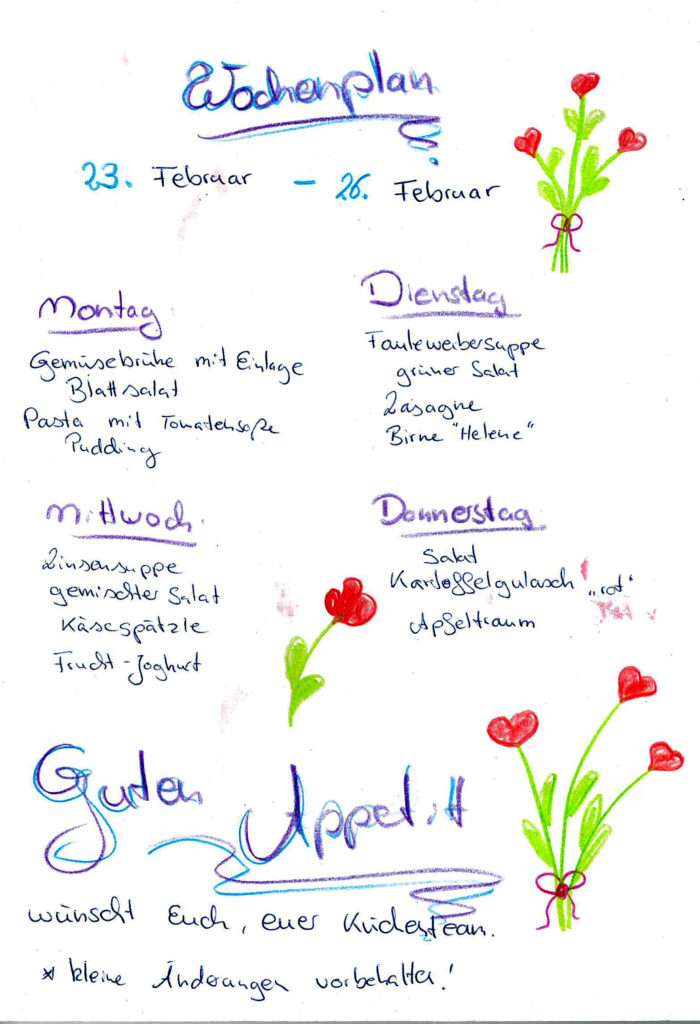 Wochenplan
23. Februar - 26. Februar
Montag
Gemüsebrühe mit Einlage
Blattsalat
Pasta mit Tomatensoße
Pudding
Dienstag
Fauleweibersuppe
grüner Salat
Lasagne
Birne "Helene"
Mittwoch
Linsensuppe
gemischter Salat
Käsespätzle
Frucht-Joghurt
Donnerstag
Salat
Kartoffelgulasch „rot"
Apfeltraum
Guten Appetit
wünscht Euch, euer Küchenteam.
* kleine Änderungen vorbehalten!